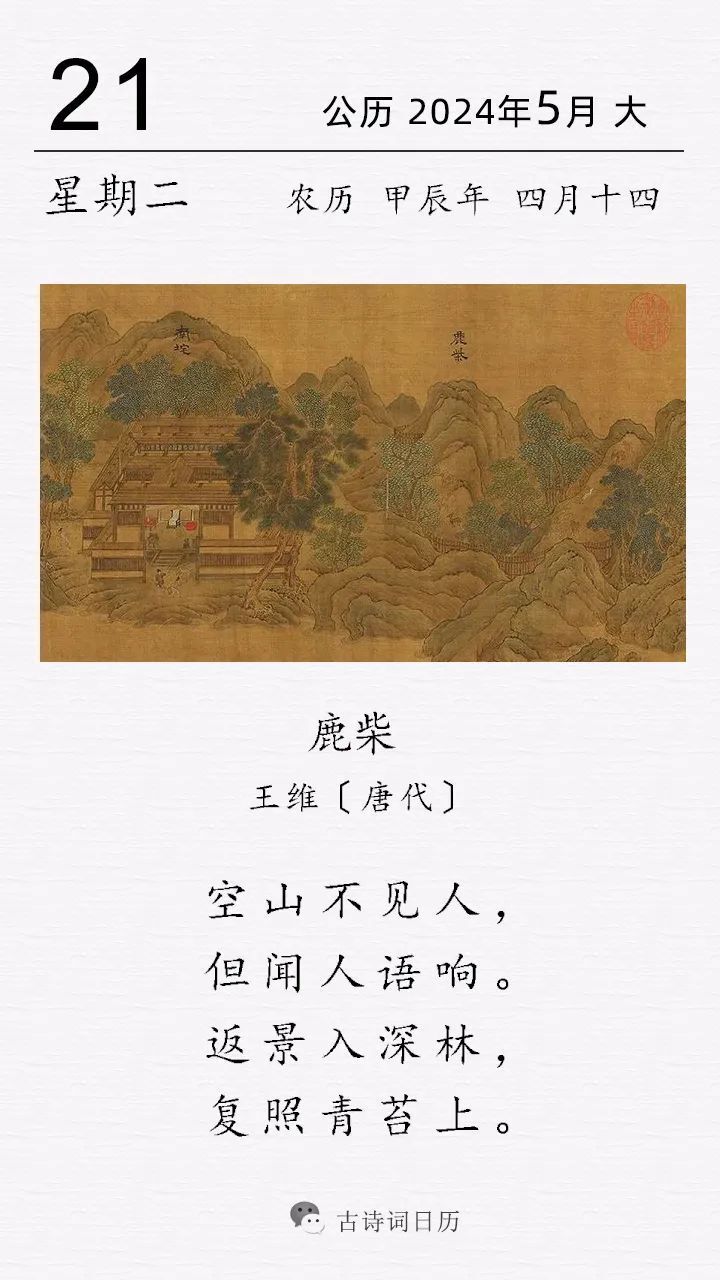 21
公历 2024年5月 大
星期二
农历 甲辰年 四月十四
南垞
鹿柴
鹿柴
王维〔唐代〕
空山不见人，
但闻人语响。
返景入深林，
复照青苔上。
古诗词日历